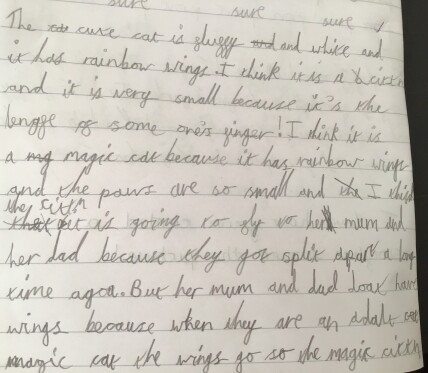 sure sure sure
The cuse cat is fluffy and and white and
it has rainbow wings. I think it is a
and it is very small because it's the
lengff of some one's finger! I think it is
a my magic cat because it has rainbow wings
and the paws are so small and tha I think
the kittn
is going to fly to her mum and
her dad because they got split apart a long
time agoa. But her mum and dad doat have
wings because when they are an adalt cat
magic cat the wings go so the magic cittn